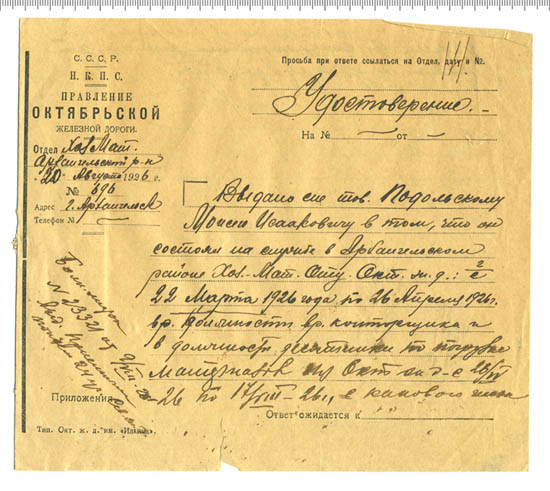 Просьба при ответе ссылаться на Отдел, дату и №.
С. С. С. Р.
Н. К. П. С.
ПРАВЛЕНИЕ
ОКТЯБРЬСКОЙ
ЖЕЛЕЗНОЙ ДОРОГИ.
Отдел Хоз. Мат.
Архангельский р-н
"20" Августа 1926 г.
№ 696
Адрес г. Архангельск
Телефон №
Удостоверение.
На № — от —
Выдано сие тов. Подольскому
Моисею Исааковичу в том, что он
состоял на службе в Архангельском
районе Хоз. Мат. Отд. Окт. ж. д.: с
22 Марта 1926 года по 26 Апреля 1926 г.
вр. должность вр. конторщика и
в должности десятника по погрузке
Окт. ж. д. с
26 по 17/VIII - 26 г., с какового числа
Приложения
Ответ ожидается к
№ 23321 от
Тип. Окт. ж. д. им. „Ильича".